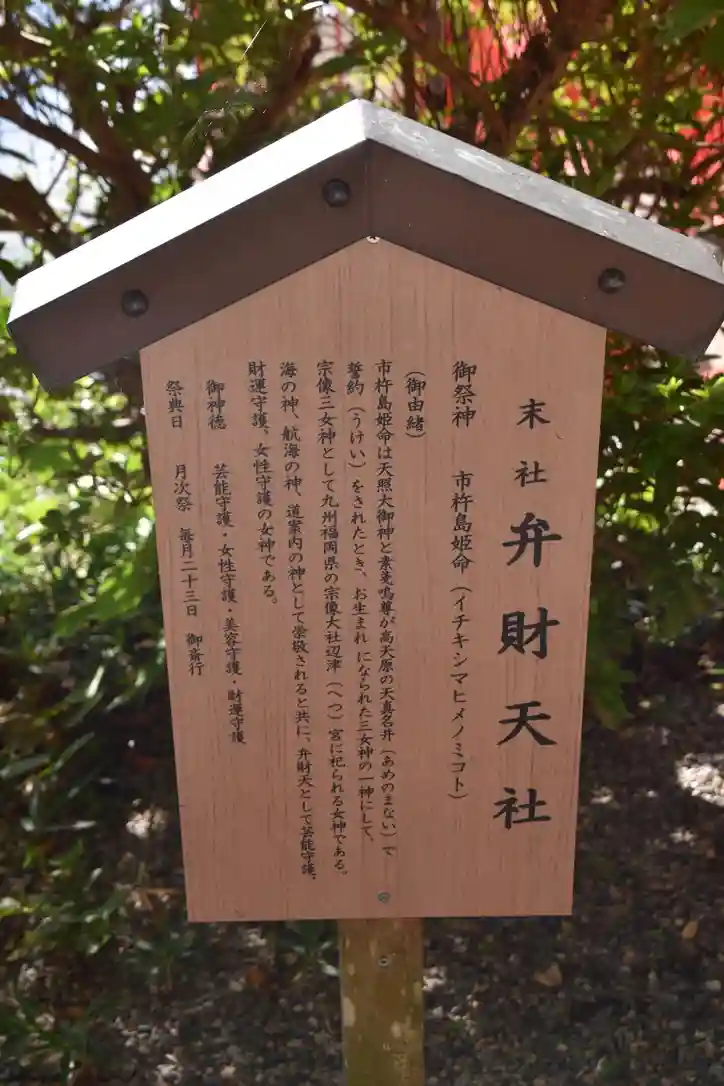 末社 弁財天社
御祭神 市杵島姫命(イチキシマヒメノミコト)
(御由緒)
市杵島姫命は天照大御神と素戔嗚尊が高天原の天真名井(あめのまない)で
誓約(うけい)をされたとき、お生まれになられた三女神の一神にして、
宗像三女神として九州福岡県の宗像大社辺津(へつ)宮に祀られる女神である。
海の神、航海の神、道案内の神として崇敬されると共に、弁財天として芸能守護、
財運守護、女性守護の女神である。
御神徳 芸能守護・女性守護・美容守護・財運守護
祭典日 月次祭 毎月二十三日 御斎行